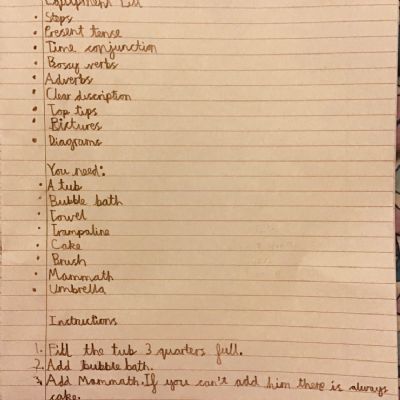 Equipment List
• Steps
• Present tense
• Time conjunction
• Bossy verbs
• Adverbs
• Clear discription
• Top tips
• Pictures
• Diagrams
You need:
• A tub
• Bubble bath
• Towel
• Trampaline
• Cake
• Brush
• Mammath
• Umbrella
Instructions
1. Fill the tub 3 quarters full.
2. Add bubble bath.
3. Add Mammath. If you can't add him there is always
cake.